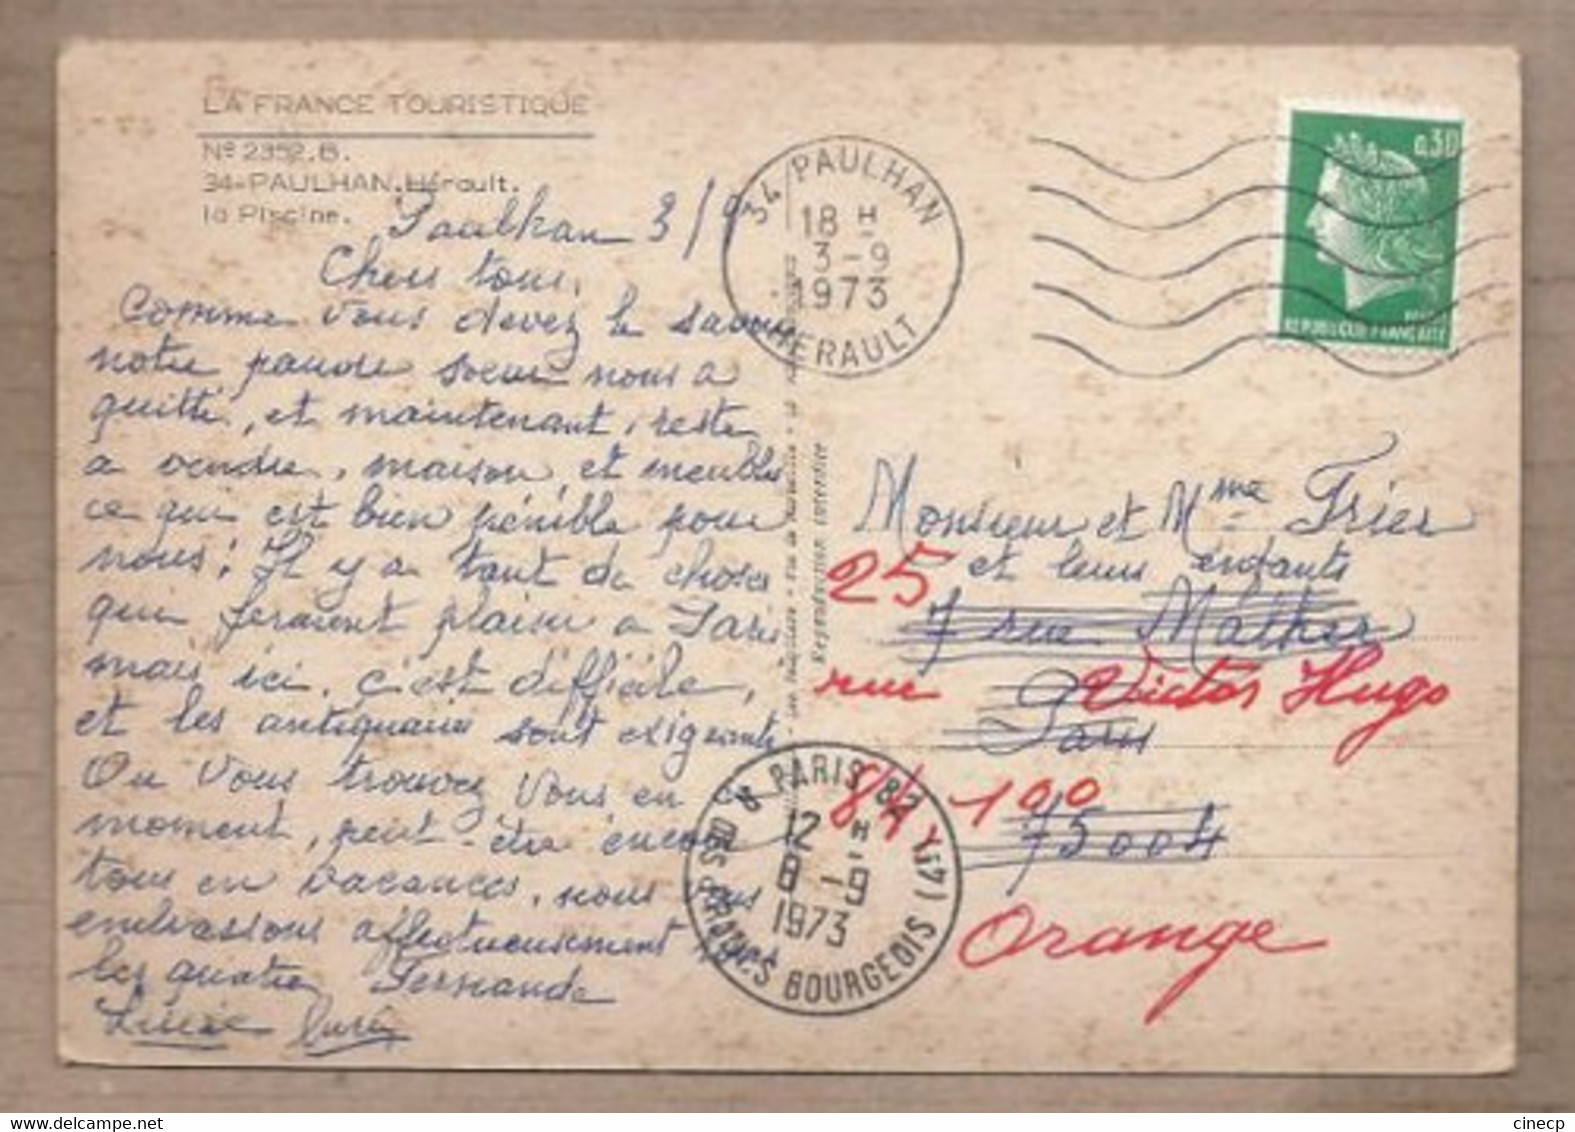 LA FRANCE TOURISTIQUE
Nº 2352.B.
34-PAULHAN.Hérault.
la Piscine.
Paulhan 3/9
Chers tous,
Comme vous devez le savoir
notre pauvre soeur nous a
quitté, et maintenant, reste
a vendre, maison, et meubles
ce qui est bien pénible pour
nous! Il y a tant de choses
qui feraient plaisir a Paris
mais ici, c'est difficile,
et les antiquaires sont exigeants
Ou vous trouvez vous en ce
moment, peut-être encore
tous en vacances, nous vous
embrassons affectueusement
les quatre Fernande
34 PAULHAN
18 H
3-9
1973
HERAULT
0,30
REPUBLIQUE FRANÇAISE
Reproduction interdite
Monsieur et Mme Frier
et leurs enfants
7 rue Malher
Paris
75004
25
rue Victor Hugo
84-100
Orange
PARIS 82
12 H
8-9
1973
R. DES FRANCS BOURGEOIS (4E)
cinecp